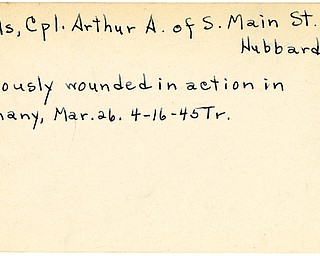 ls, Cpl. Arthur A. of S. Main St.
Hubbard
ously wounded in action in
many, Mar. 26. 4-16-45 Tr.